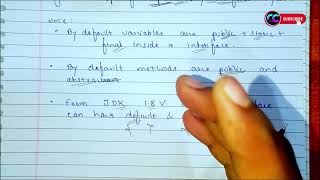 Note:
SUBSCRIBE
• By default variables are public + static +
final inside a interface.
• By default methods are public and
abstract
• From JDK 1.8 V
can have default &